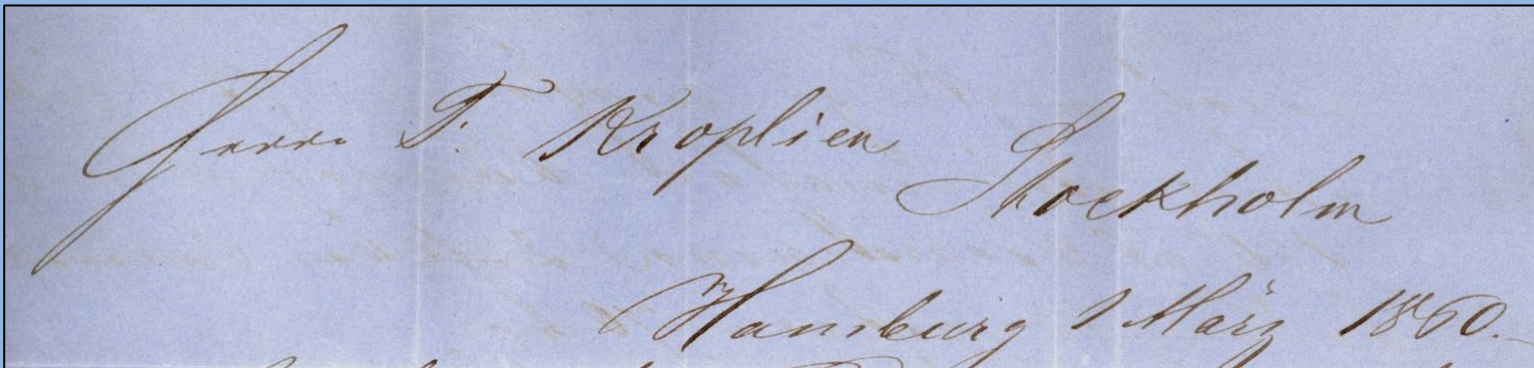 Herrn F. Kroplien Stockholm
Hamburg 1 März 1860.